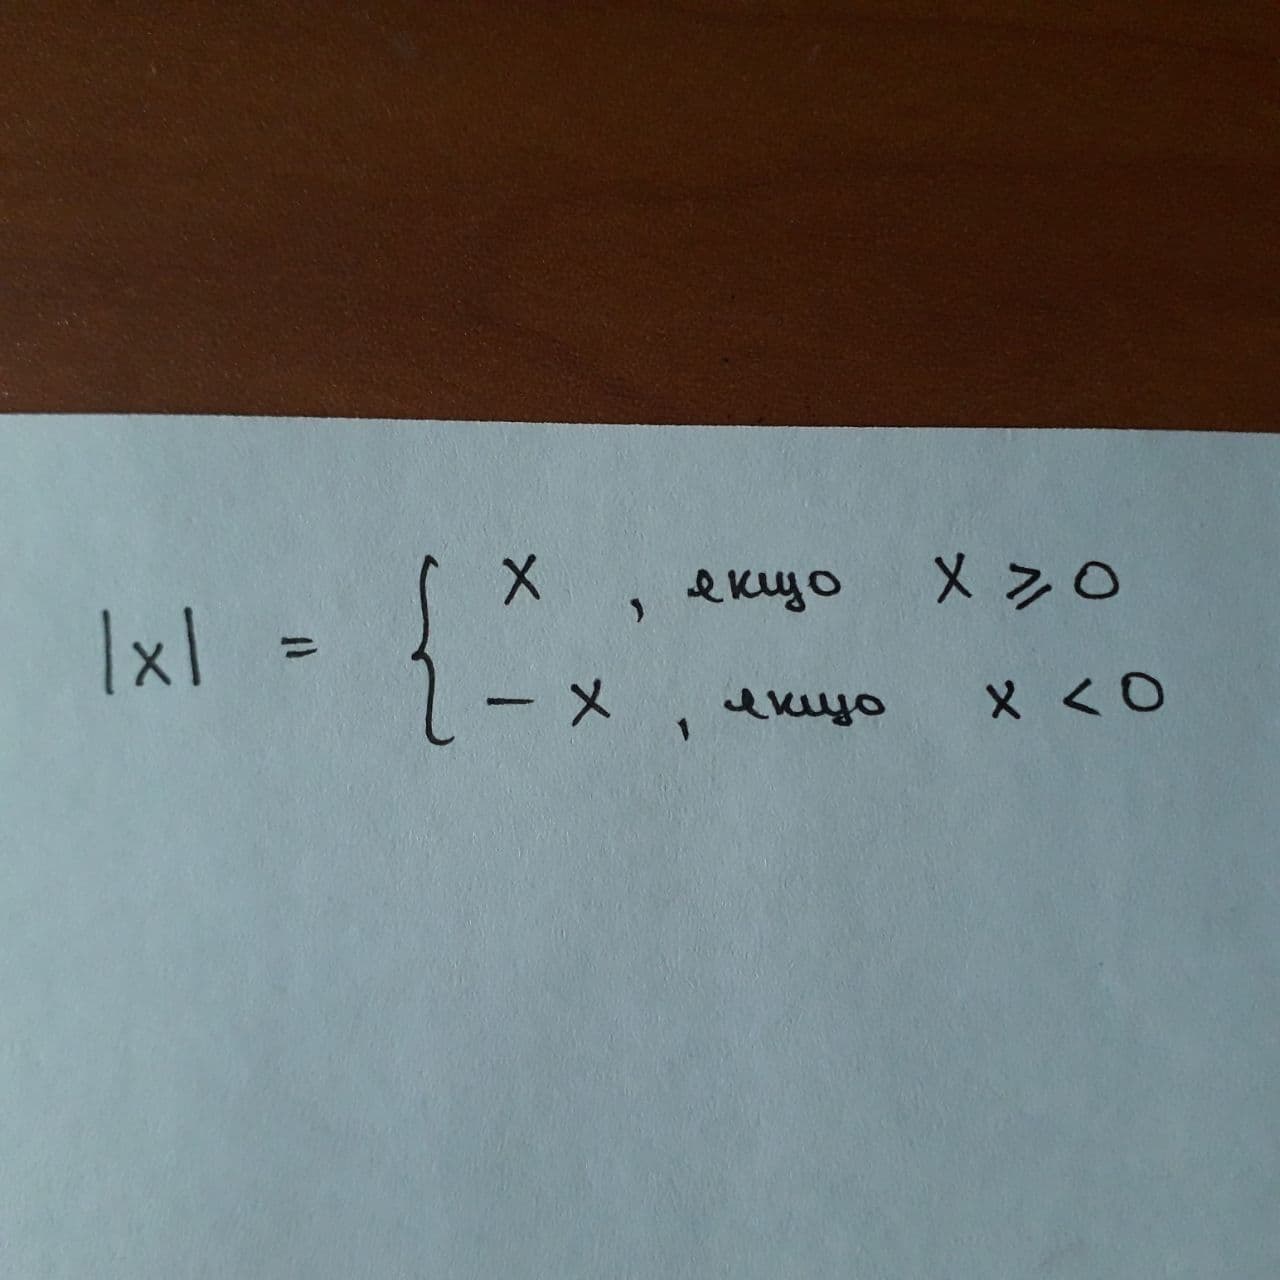 |x| = { x , якщо x ⩾ 0
- x , якщо x < 0